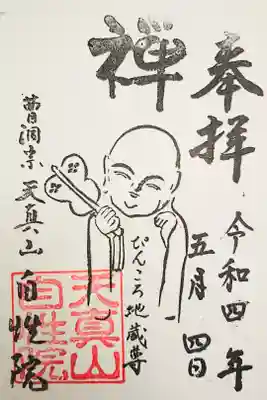 奉拝
令和四年
五月四日
禅
ぴんころ地蔵尊
曹洞宗 天真山
自性院
天真山
自性院